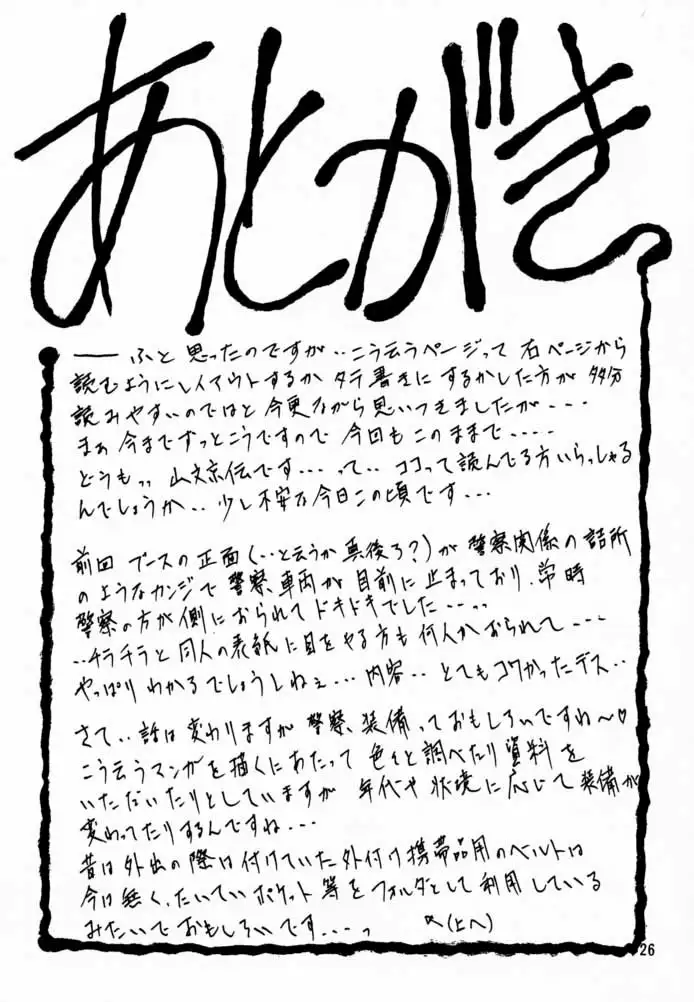 あとがき
── ふと思ったのですが‥こう云うページって右ページから
読むようにレイアウトするかタテ書きにするかした方が多分
読みやすいのではと今更ながら思いつきましたが‥‥
まぁ今までずっとこうですので今回もこのままで‥‥‥
どうもっ、山文京伝です‥‥って‥ココって読んでる方いらっしゃる
んでしょうか‥少し不安な今日この頃です‥‥
前回ブースの正面(‥と云うか真後ろ?)が警察関係の詰所
のようなカンジで警察車両が目前に止まっており、常時
警察の方が側におられてドキドキでした‥‥
‥チラチラと同人の表紙に目をやる方も何人かおられて‥‥
やっぱりわかるでしょうしねぇ‥‥内容‥とてもコワかったデス‥
さて‥話は変わりますが警察装備っておもしろいですね〜♡
こう云うマンガを描くにあたって色々と調べたり資料を
いただいたりとしていますが年代や状境に応じて装備が
変わってたりするんですね‥‥
昔は外出の際は付けていた外付け携帯品用のベルトは
今は無く、たいていポケット等をフォルダとして利用している
みたいでおもしろいです‥‥っ
(上へ)
26